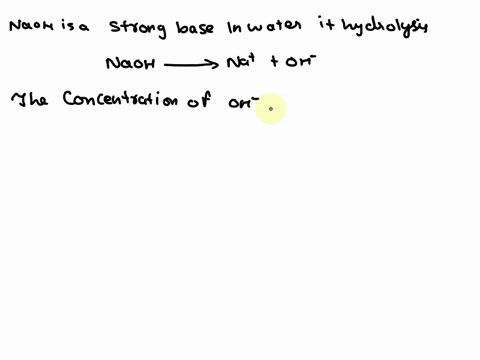 NaOH is a strong base In water it hydrolysis
NaOH ⟶ Na⁺ + OH⁻
The Concentration of OH⁻